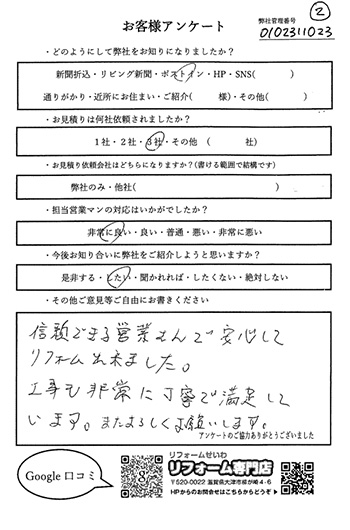 お客様アンケート
弊社管理番号
②
0102311023
・どのようにして弊社をお知りになりましたか?
新聞折込・リビング新聞・ポストイン・HP・SNS( )
通りがかり・近所にお住まい・ご紹介( 様)・その他( )
・お見積りは何社依頼されましたか?
1社・2社・3社・その他 ( 社)
・お見積り依頼会社はどちらになりますか?(書ける範囲で結構です)
弊社のみ・他社( )
・担当営業マンの対応はいかがでしたか?
非常に良い・良い・普通・悪い・非常に悪い
・今後お知り合いに弊社をご紹介しようと思いますか?
是非する・したい・聞かれれば・したくない・絶対しない
・その他ご意見等ご自由にお書きください
信頼できる営業さんで安心して
リフォーム出来ました。
工事も非常に丁寧で満足して
います。またよろしくお願いします。
アンケートのご協力ありがとうございました
Google 口コミ
リフォームせいわ
リフォーム専門店
〒520-0022 滋賀県大津市柳が崎4-6
HPからのお問合せはこちらからどうぞ